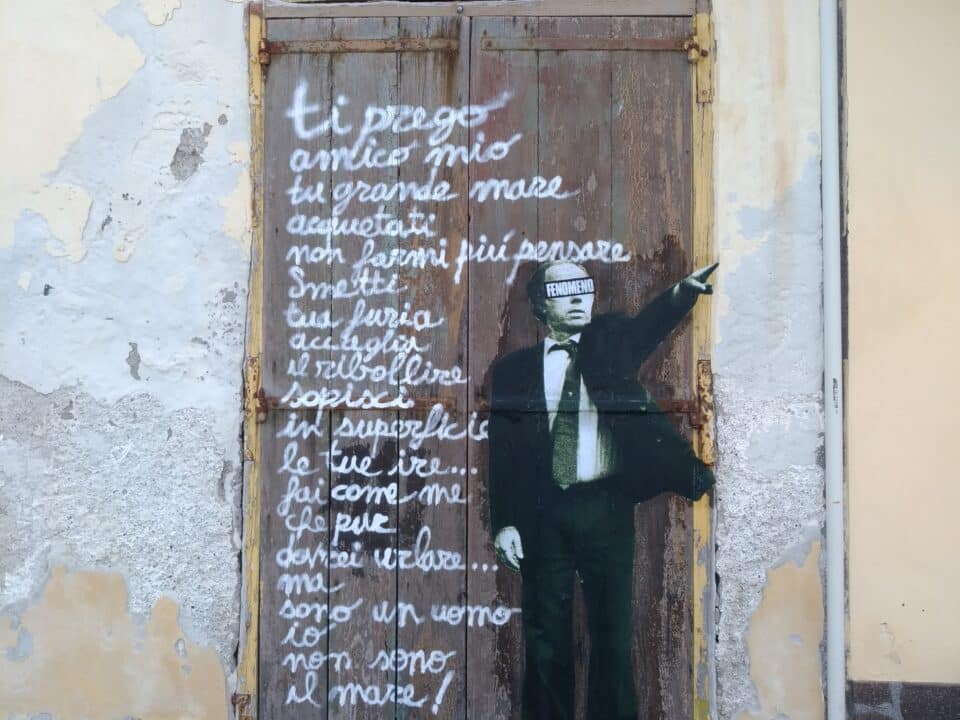 ti prego
amico mio
tu grande mare
acquetati
non farmi piú pensare
Smetti
tua furia
accoglia
il ribollire
sopisci
in superficie
le tue ire...
fai come me
che pur
darei urlare...
ma
sono un uomo
io
non sono
il mare!
FENOMENO